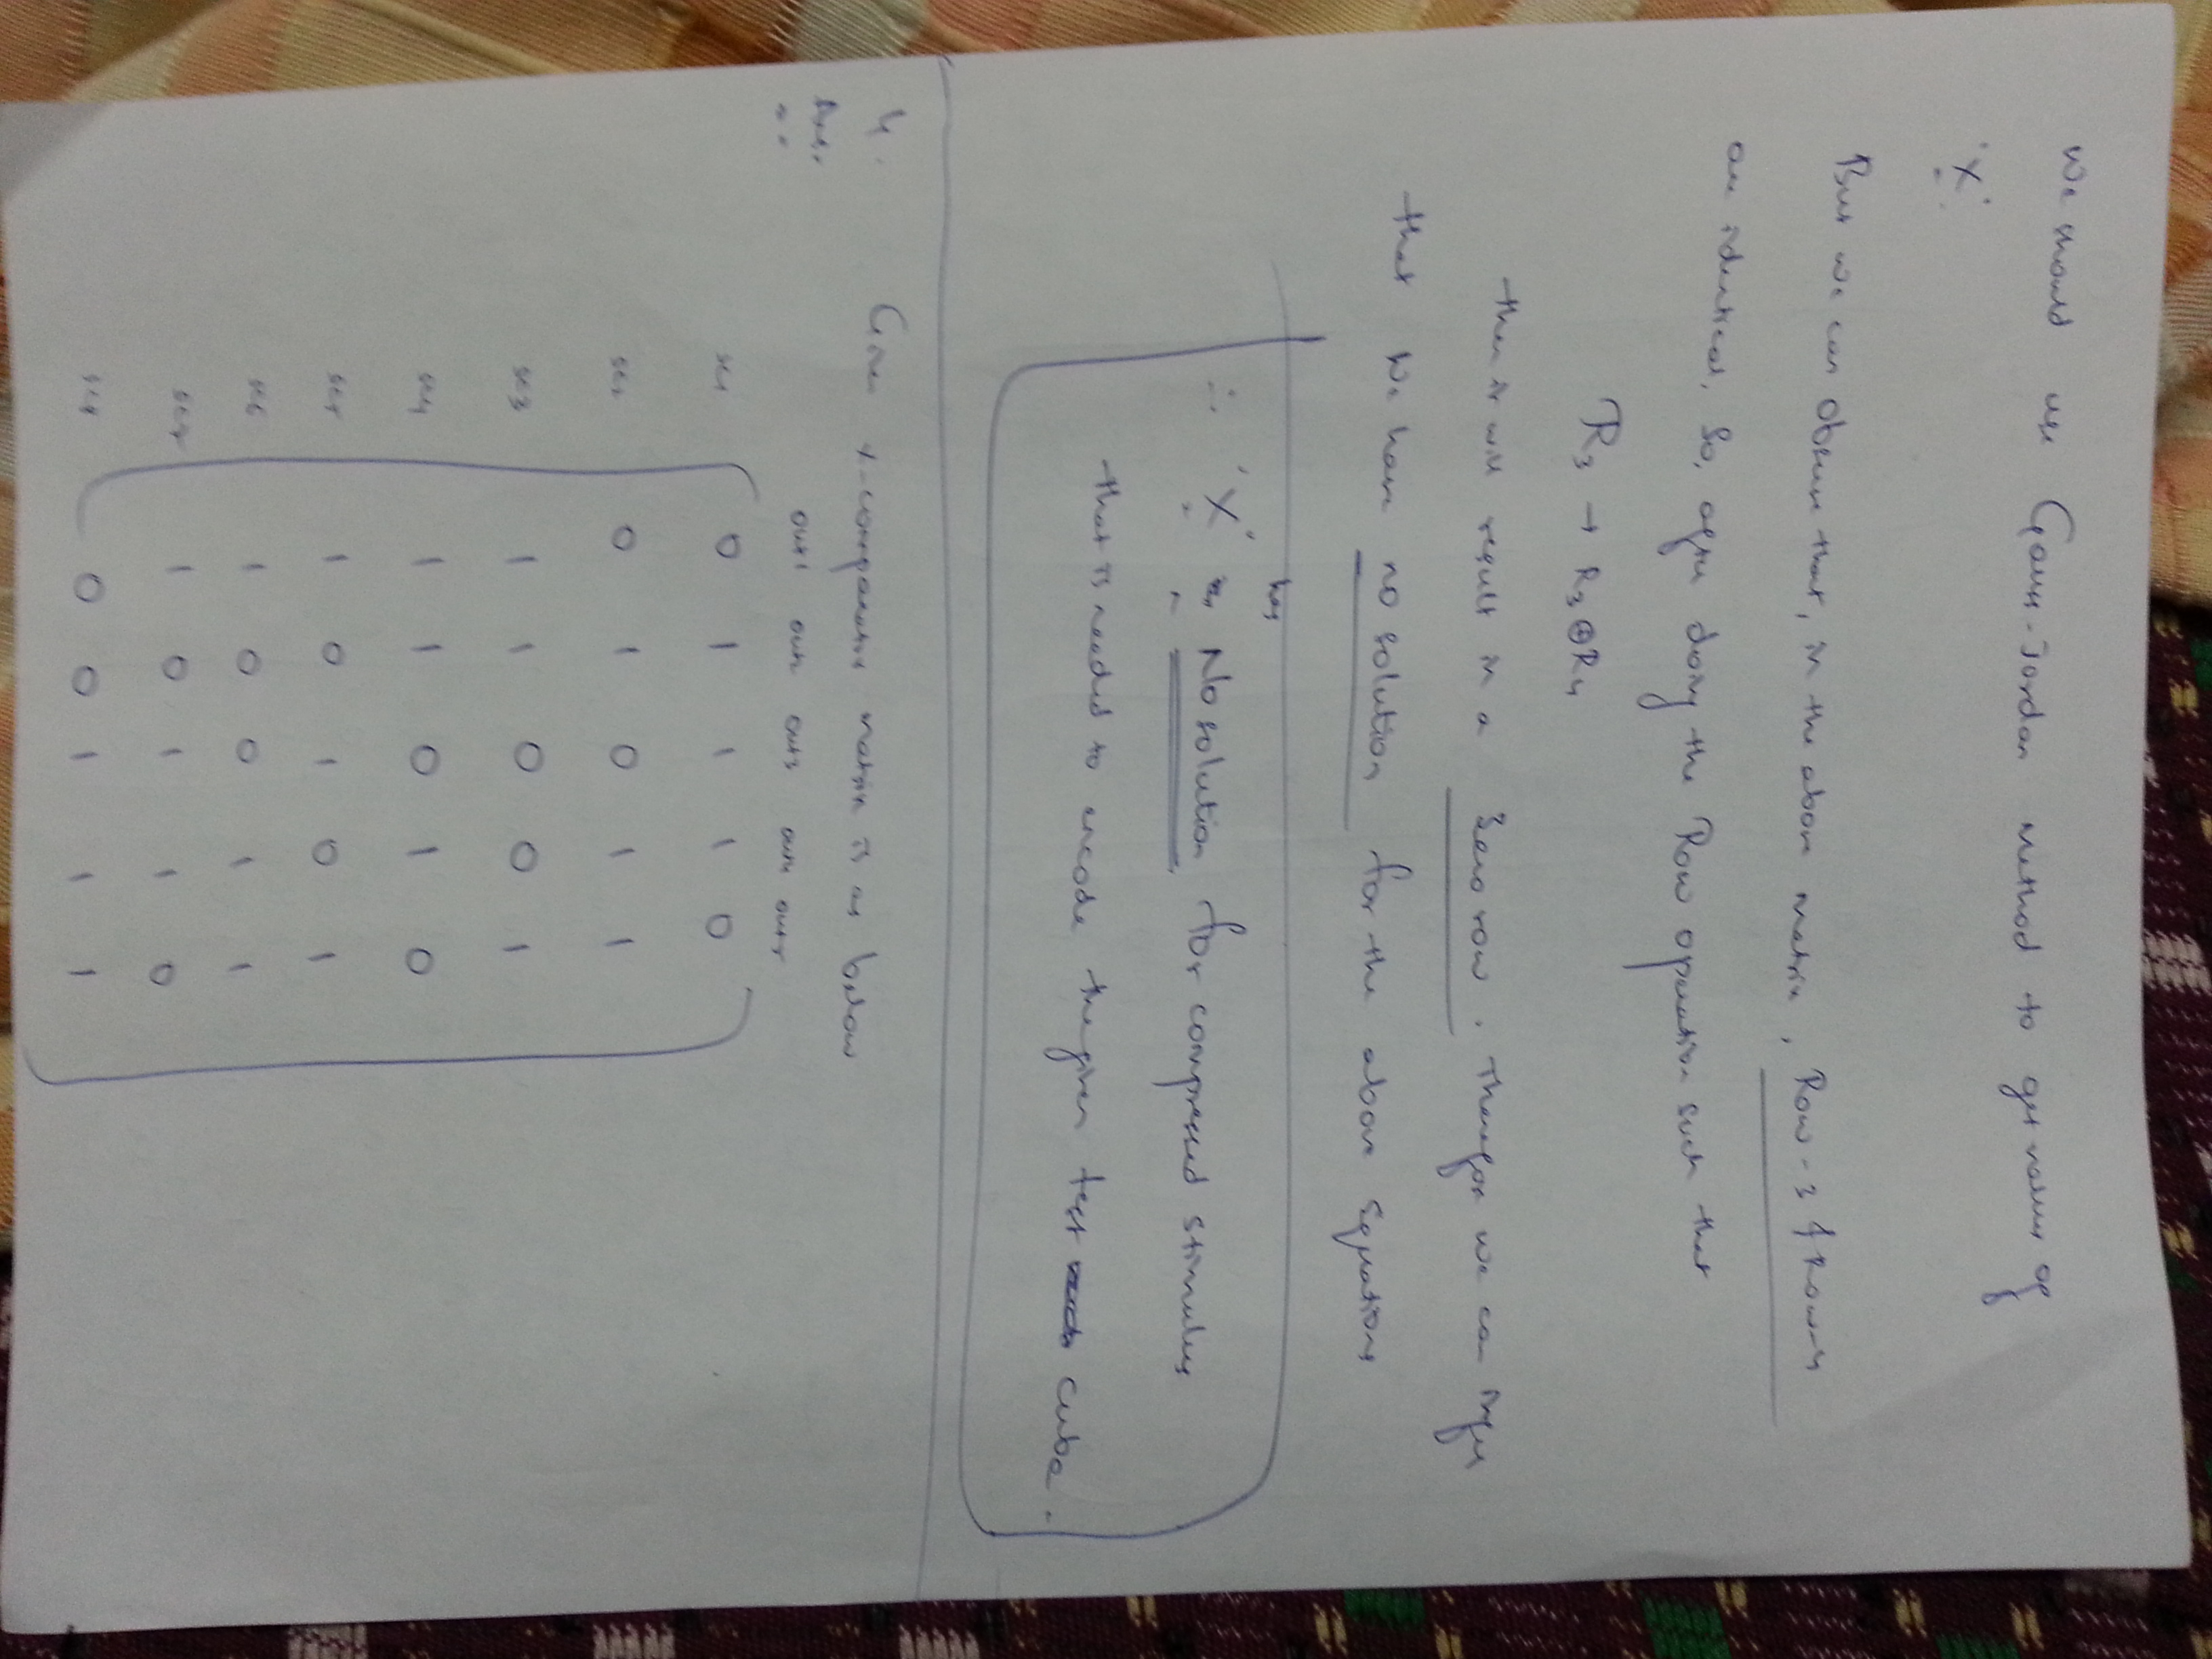 We should use Gauss-Jordan Method to get values of
'X'
But we can observe that, in the above matrix, Row-3 & Row-4
are identical. So, after doing the Row operation such that
R3 → R3 ⊕ R4
then it will result in a zero row. Therefore we can infer
that we have no solution for the above Equations
∴ 'X' has No solution for compressed stimulus
that is needed to encode the given test cube.
4. Given X-compactor matrix is as below
Ans:
out1 out2 out3 out4 out5
sc1 0 1 1 1 0
sc2 0 1 0 1 1
sc3 1 1 0 0 1
sc4 1 1 0 1 0
sc5 1 0 1 0 1
sc6 1 0 0 1 1
sc7 1 0 1 1 0
sc8 0 0 1 1 1